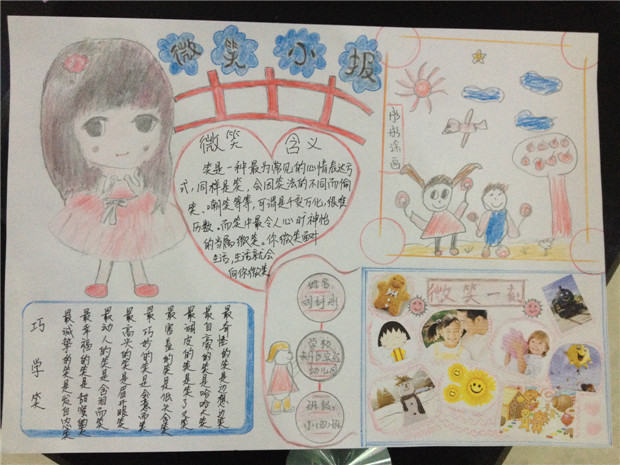 微笑小报
微笑 含义
笑是一种最为常见的心情表达方
式,同样是笑,会因笑法的不同而愉
笑、嘲笑等等,可谓是千变万化,很难
历数。而笑中最令人心旷神怡
的当属微笑。你微笑面对
生活,生活就会
向你微笑
涂画
姓名
学校
幼儿园
班级
微笑一刻
巧学笑
最奇怪的笑是边想边笑
最自豪的笑是哈哈大笑
最顽皮的笑是笑了又笑
最害羞的笑是低头含笑
最巧妙的笑是会意而笑
最高兴的笑是眉开眼笑
最动人的笑是含泪而笑
最幸福的笑是甜
最诚挚的笑是发自